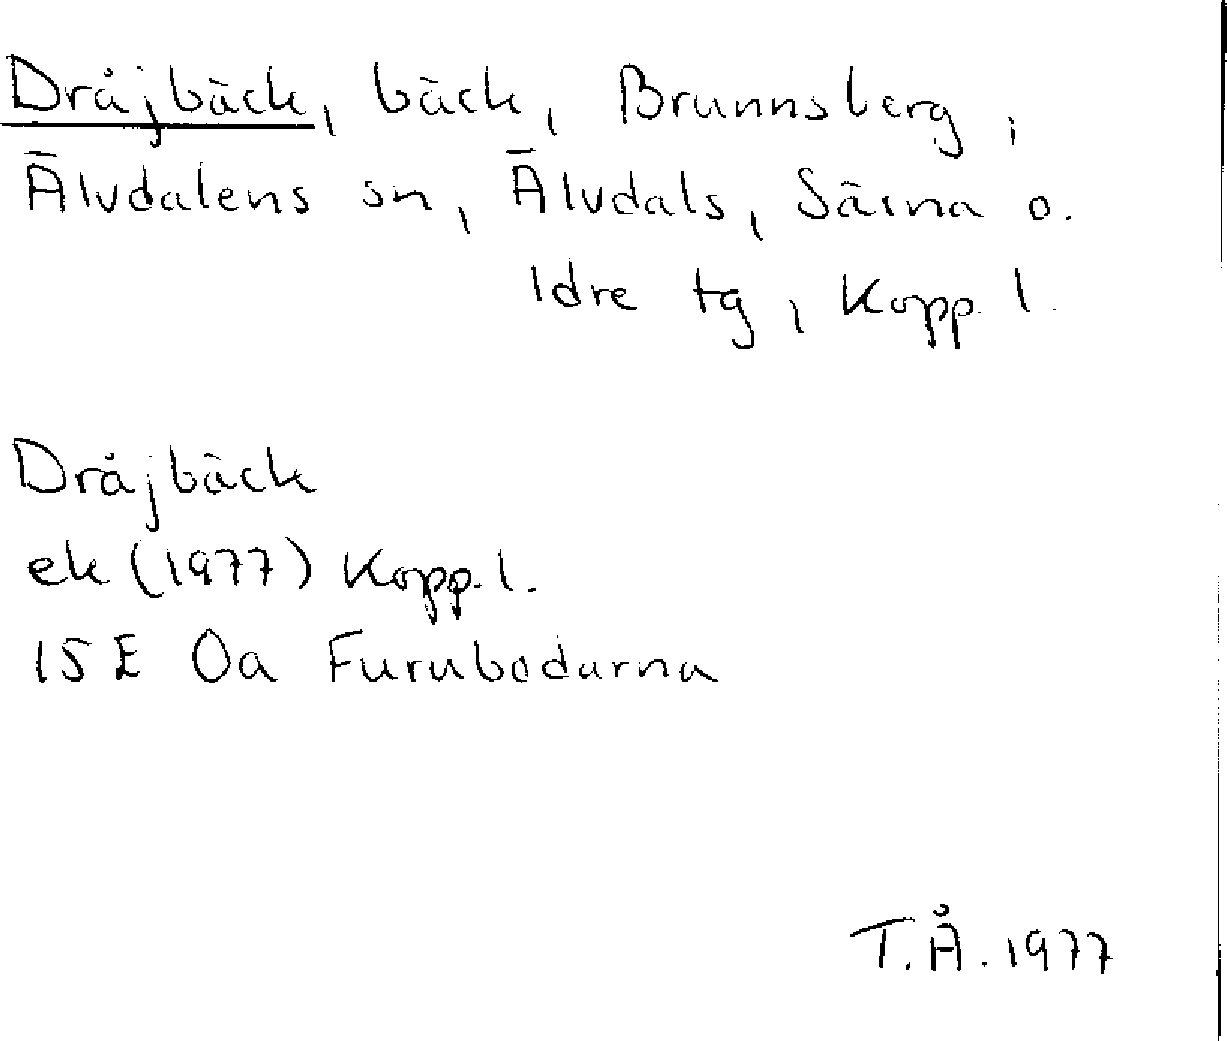 Dråjbäck, bäck, Brunnsberg,
Älvdalens sn, Älvdals, Särna o.
Idre tg, Kopp. l.
Dråjbäck
ek (1977) Kopp. l.
15 E 0a Furubodarna
T.Å. 1977